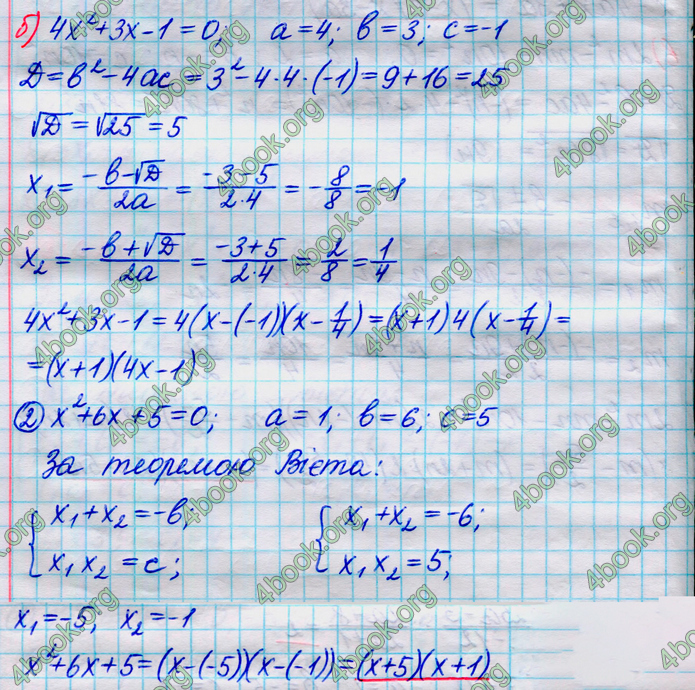 б) 4x²+3x-1=0; a=4; b=3; c=-1
Д=b²-4ac=3²-4·4·(-1)=9+16=25
√Д=√25=5
x₁=(-b-√Д)/(2a)=(-3-5)/(2·4)=-8/8=-1
x₂=(-b+√Д)/(2a)=(-3+5)/(2·4)=2/8=1/4
4x²+3x-1=4(x-(-1))(x-1/4)=(x+1)4(x-1/4)=
=(x+1)(4x-1)
② x²+6x+5=0; a=1; b=6; c=5
За теоремою Вієта:
{ x₁+x₂=-b; { x₁+x₂=-6;
x₁x₂=c; x₁x₂=5;
x₁=-5; x₂=-1
x²+6x+5=(x-(-5))(x-(-1))=(x+5)(x+1)
4book.org